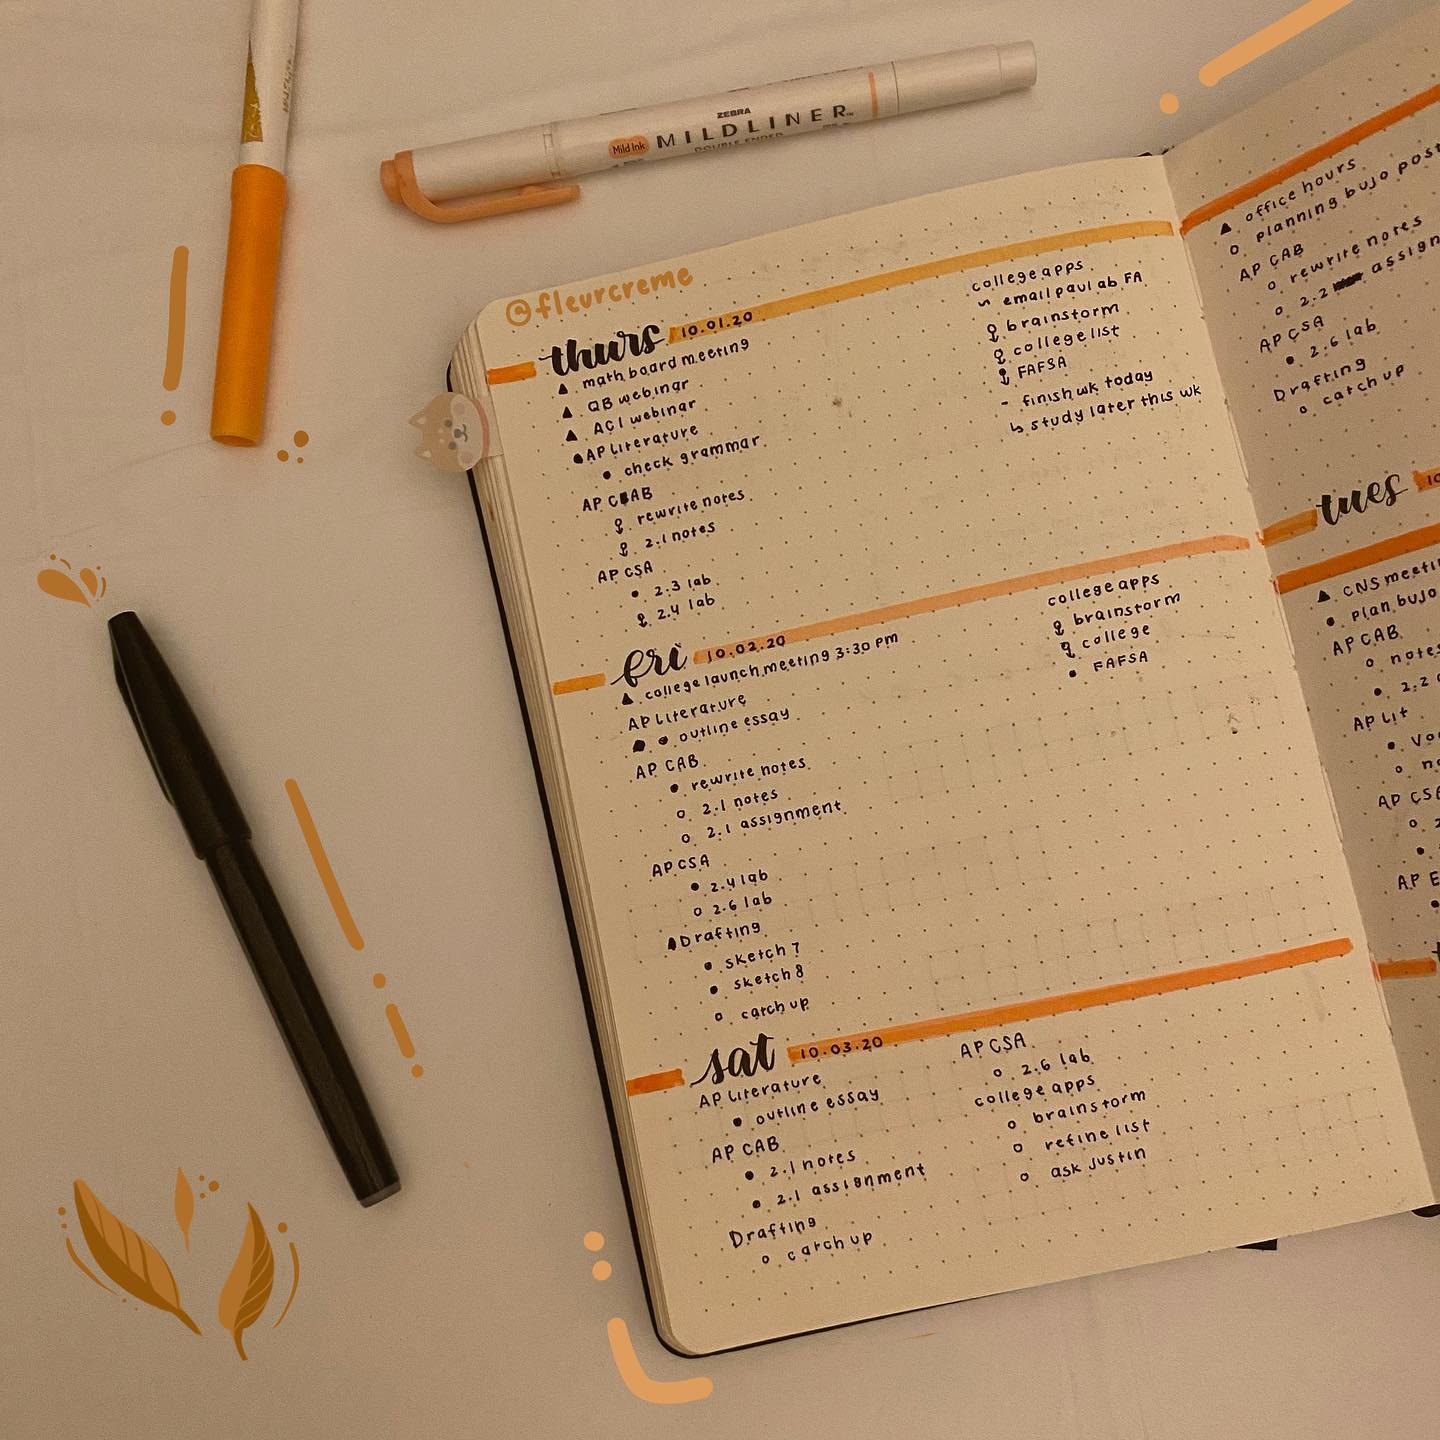 ZEBRA
Mild Ink MILDLINER
DOUBLE ENDED
@fleurcreme
thurs 10.01.20
math board meeting
QB webinar
ACI webinar
AP Literature
check grammar
AP CAB
rewrite notes
2.1 notes
AP CSA
2.3 lab
2.4 lab
college apps
email paul ab FA
brainstorm
college list
FAFSA
- finish wk today
↳ study later this wk
fri 10.02.20
college launch meeting 3:30 pm
AP Literature
outline essay
AP CAB
rewrite notes
2.1 notes
2.1 assignment
AP CSA
2.4 lab
2.6 lab
Drafting
sketch 7
sketch 8
catch up
college apps
brainstorm
college
FAFSA
sat 10.03.20
AP Literature
outline essay
AP CAB
2.1 notes
2.1 assignment
Drafting
catch up
AP CSA
2.6 lab
college apps
brainstorm
refine list
ask Justin
office hours
planning bujo post
AP CAB
rewrite notes
2.2 assign
AP CSA
2.6 lab
Drafting
catch up
tues 10
CNS meeti
plan bujo
AP CAB
notes
2.2
AP Lit
AP CSA
AP E